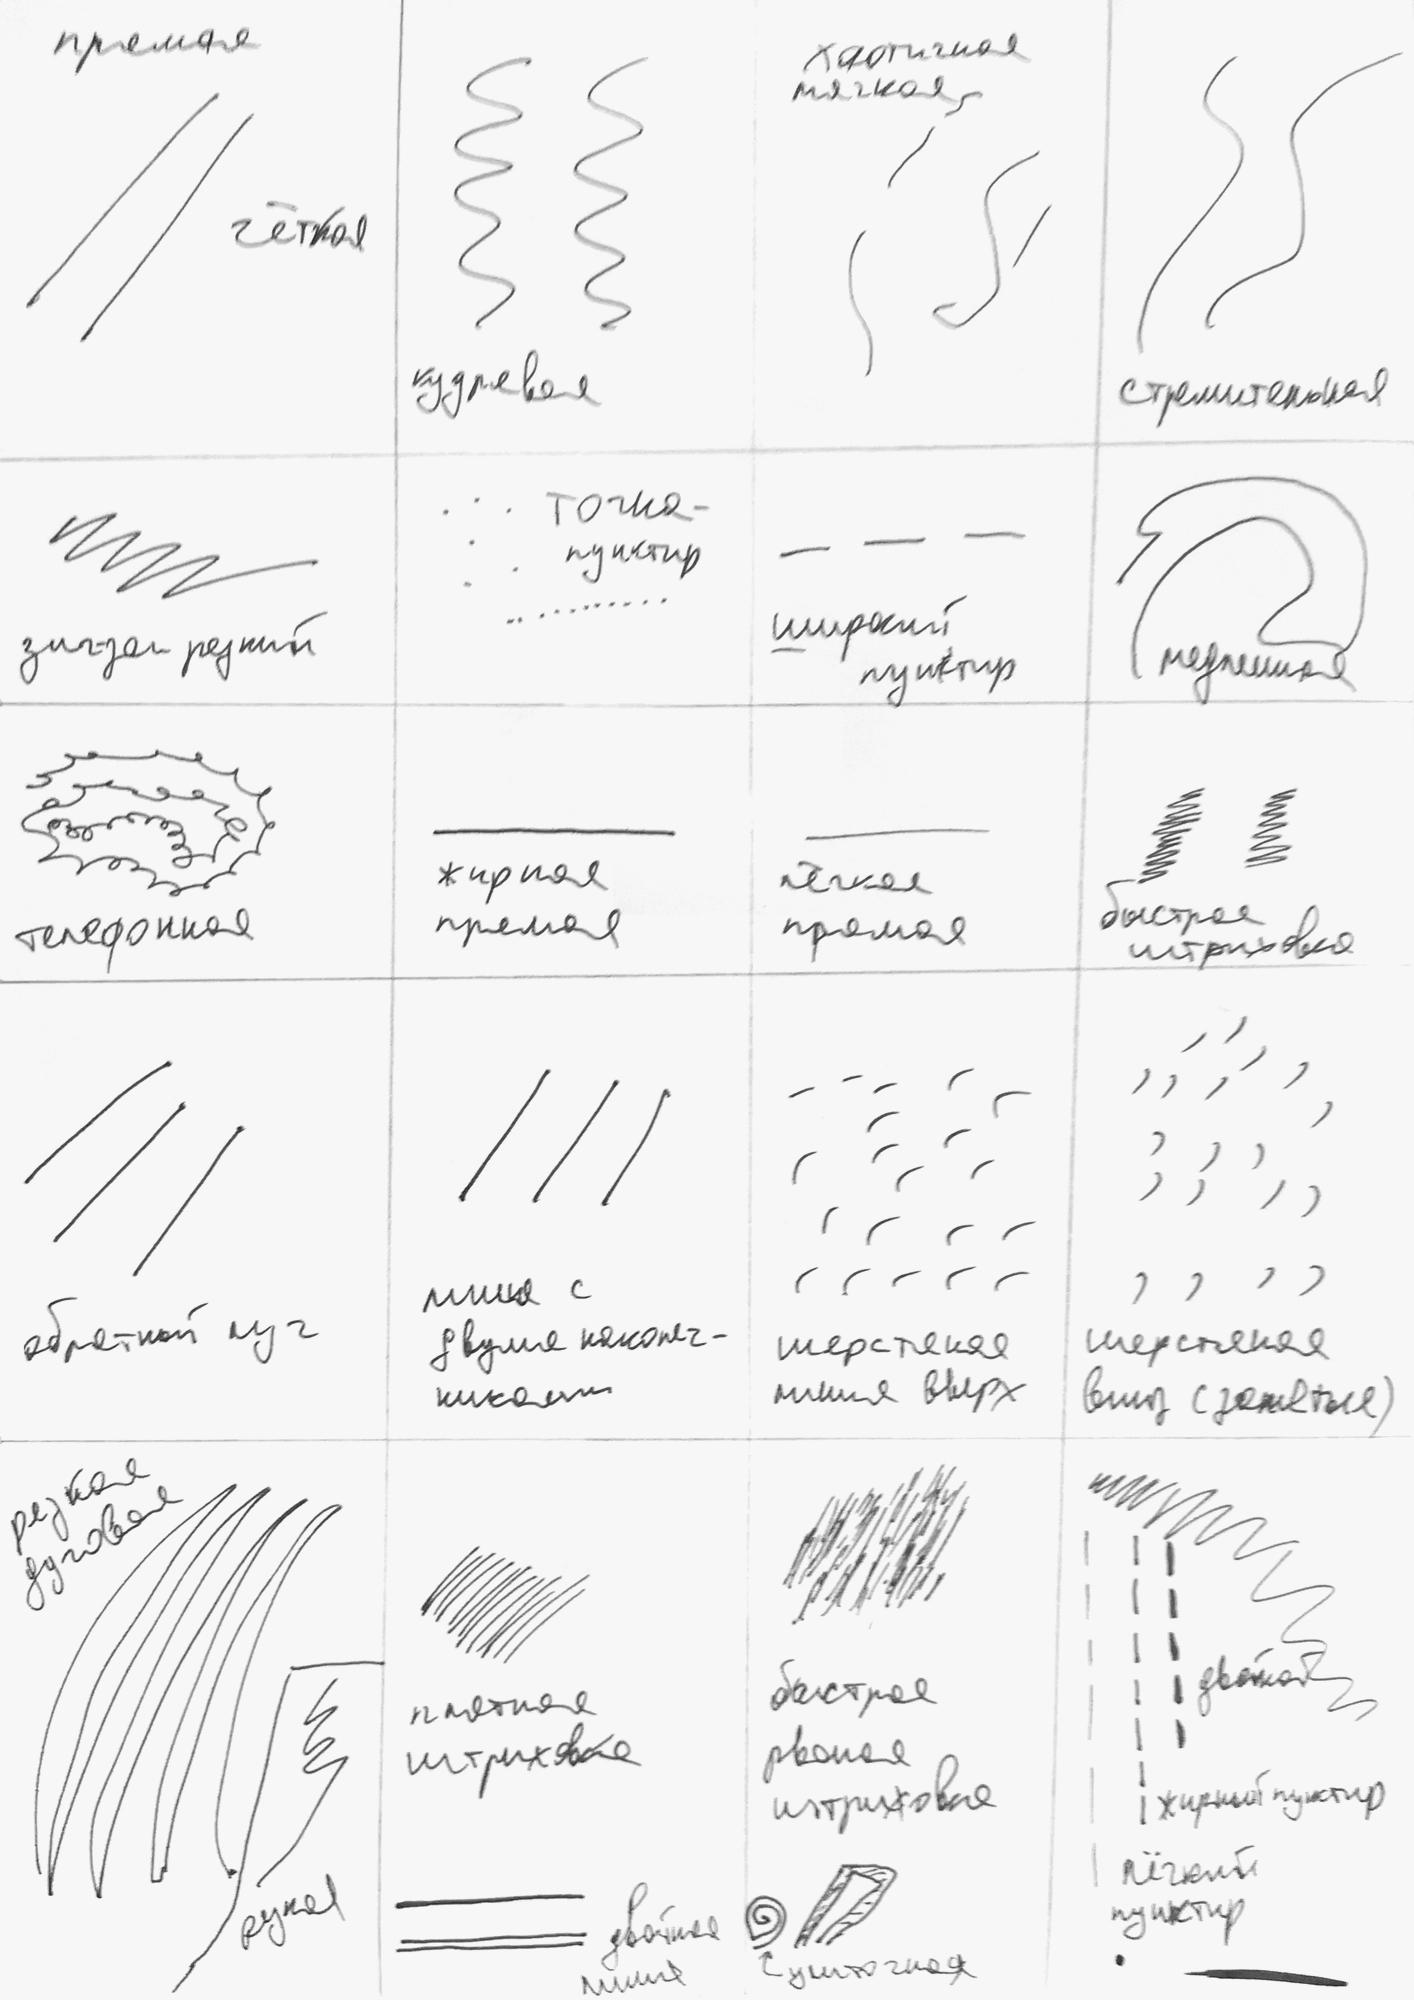 прямая
чёткая
кудрявая
хаотичная
мягкая
стремительная
зигзаг резкий
точка-
пунктир
широкий
пунктир
медленная
телефонная
жирная
прямая
лёгкая
прямая
быстрая
штриховка
обратный луч
линия с
двумя наконеч-
никами
шерстяная
линия вверх
шерстяная
вниз (зажатая)
резкая
дуговая
резкая
плотная
штриховка
двойная
линия
быстрая
рваная
штриховка
улиточная
двойной
жирный пунктир
лёгкий
пунктир